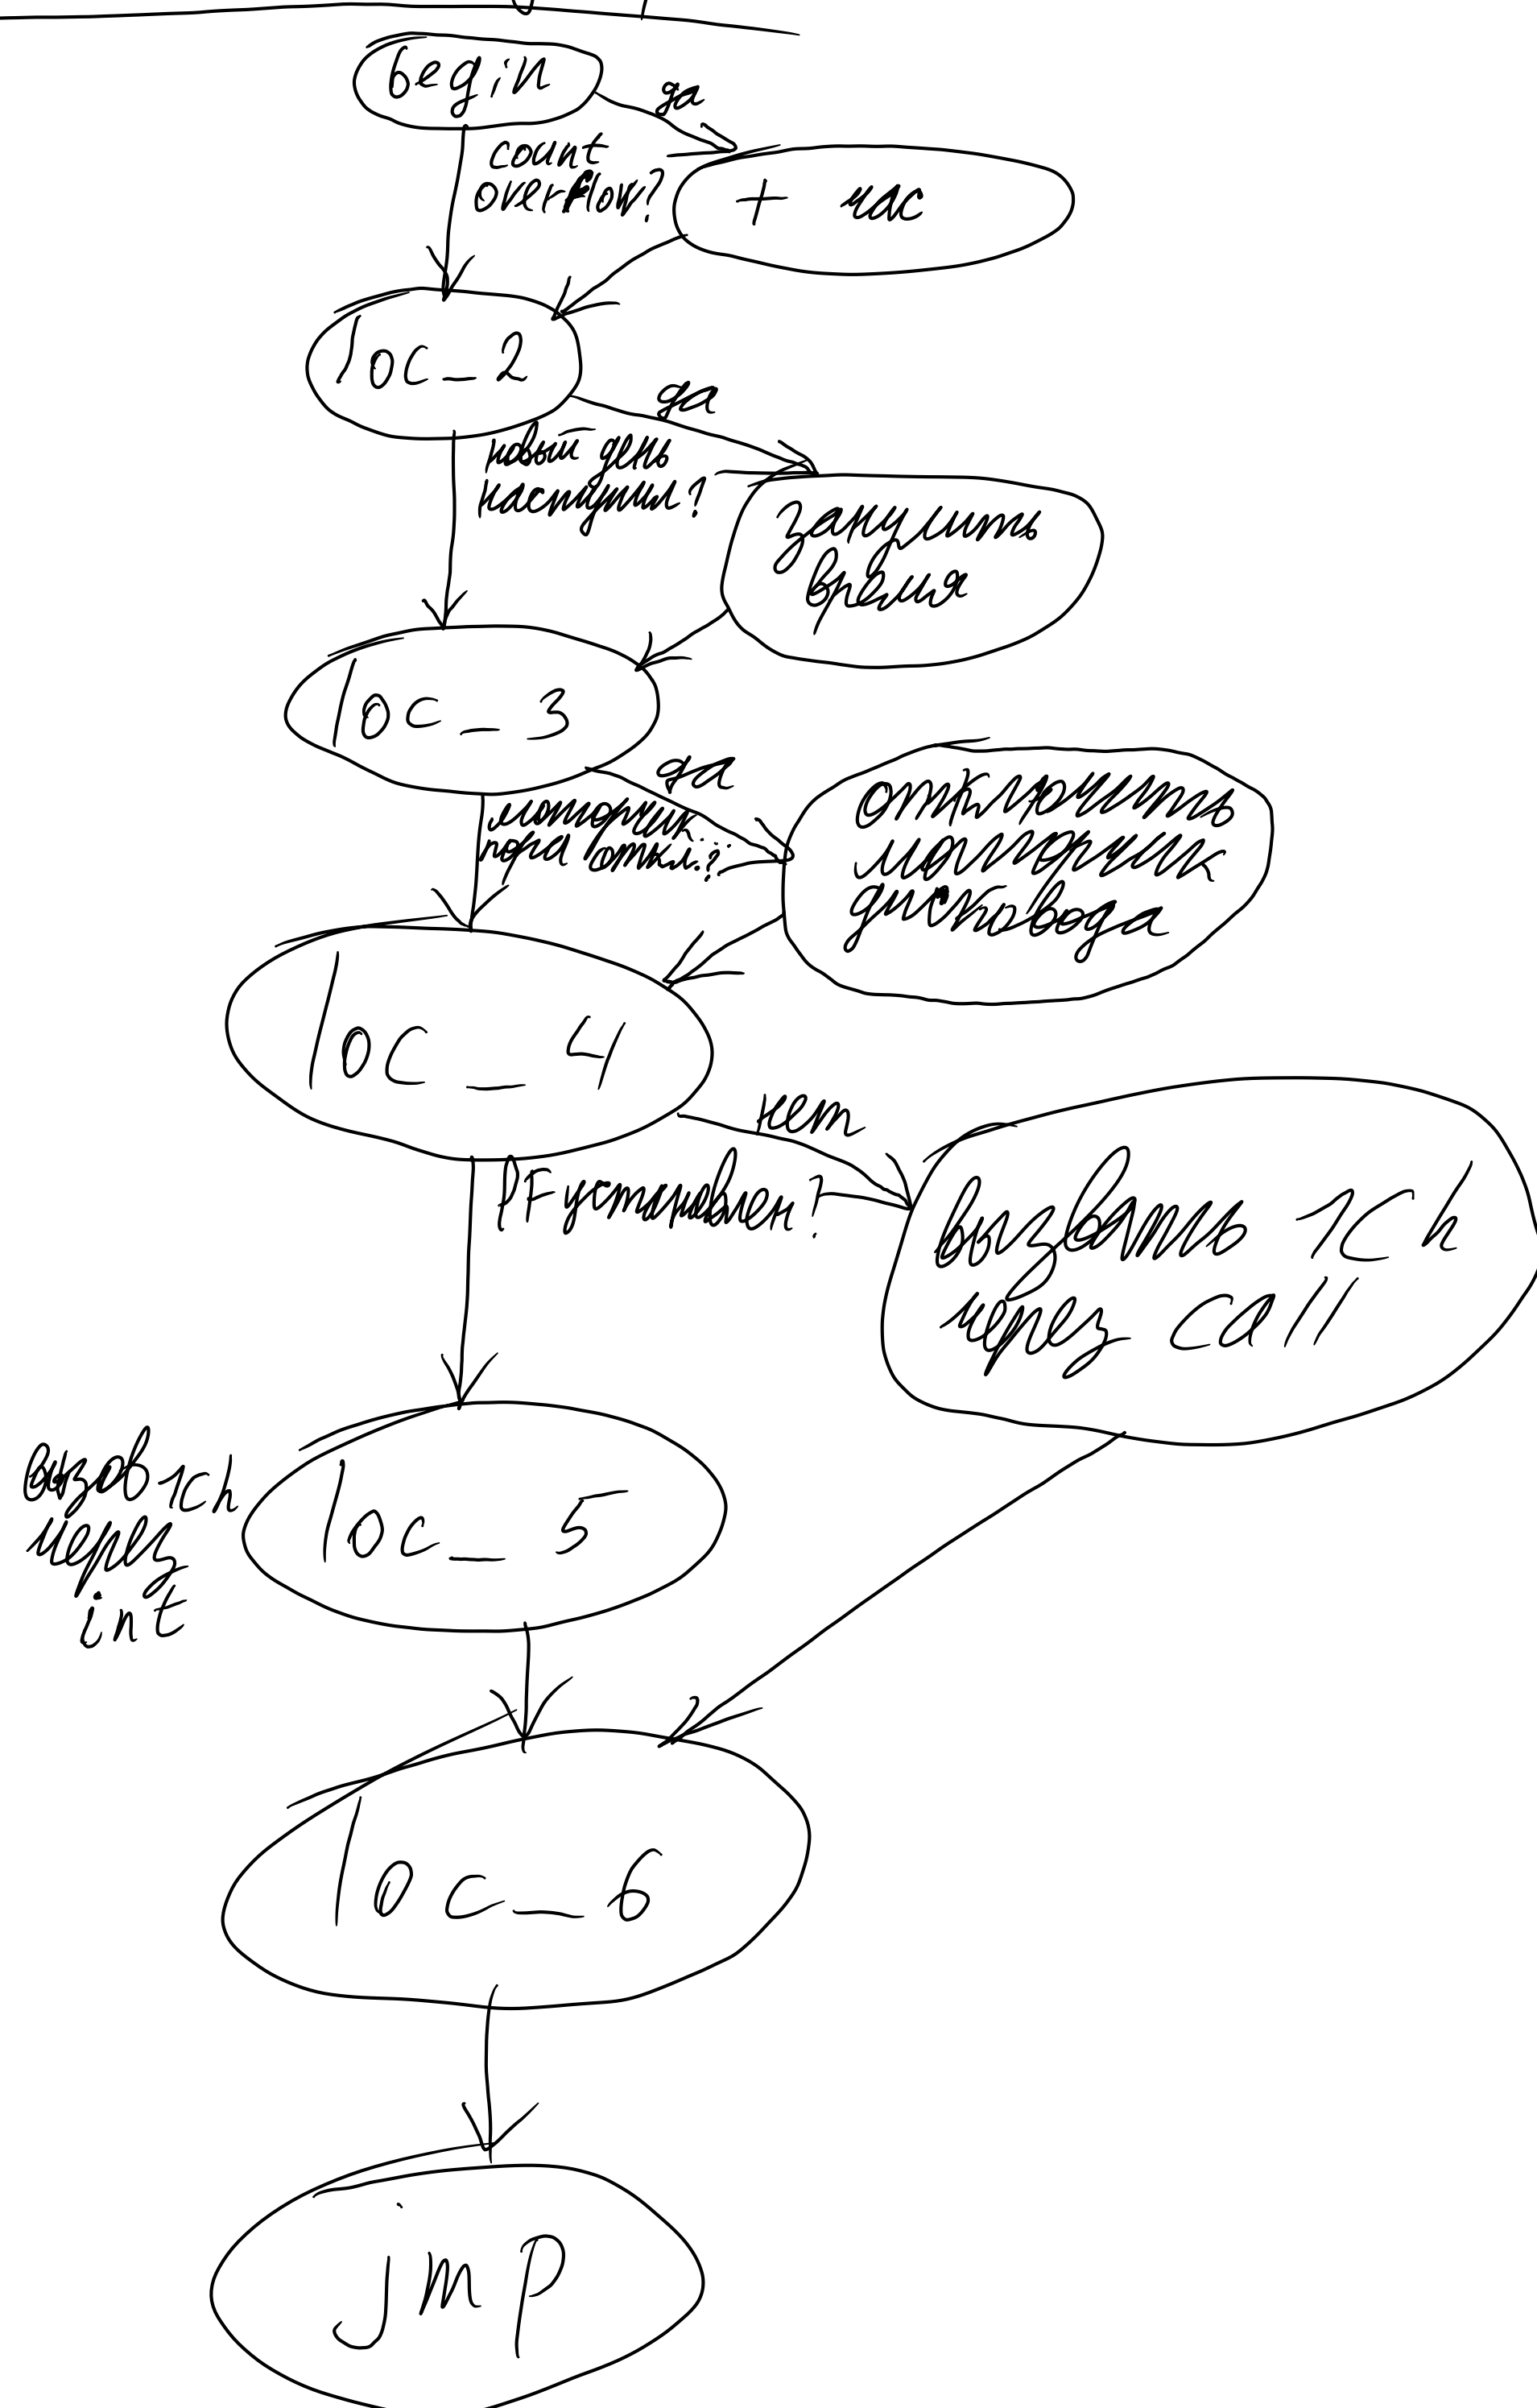 begin
да
count
overflow?
+ час
loc_2
да
новый день
наступил?
Занулить
время
loc_3
да
моторчик
пора откл.?
отключить
моторчик
дисковода
loc_4
нет
PF установлен?
вызвать 1Ch
через call
loc_5
вызов 1Ch
через
int
loc_6
jmp